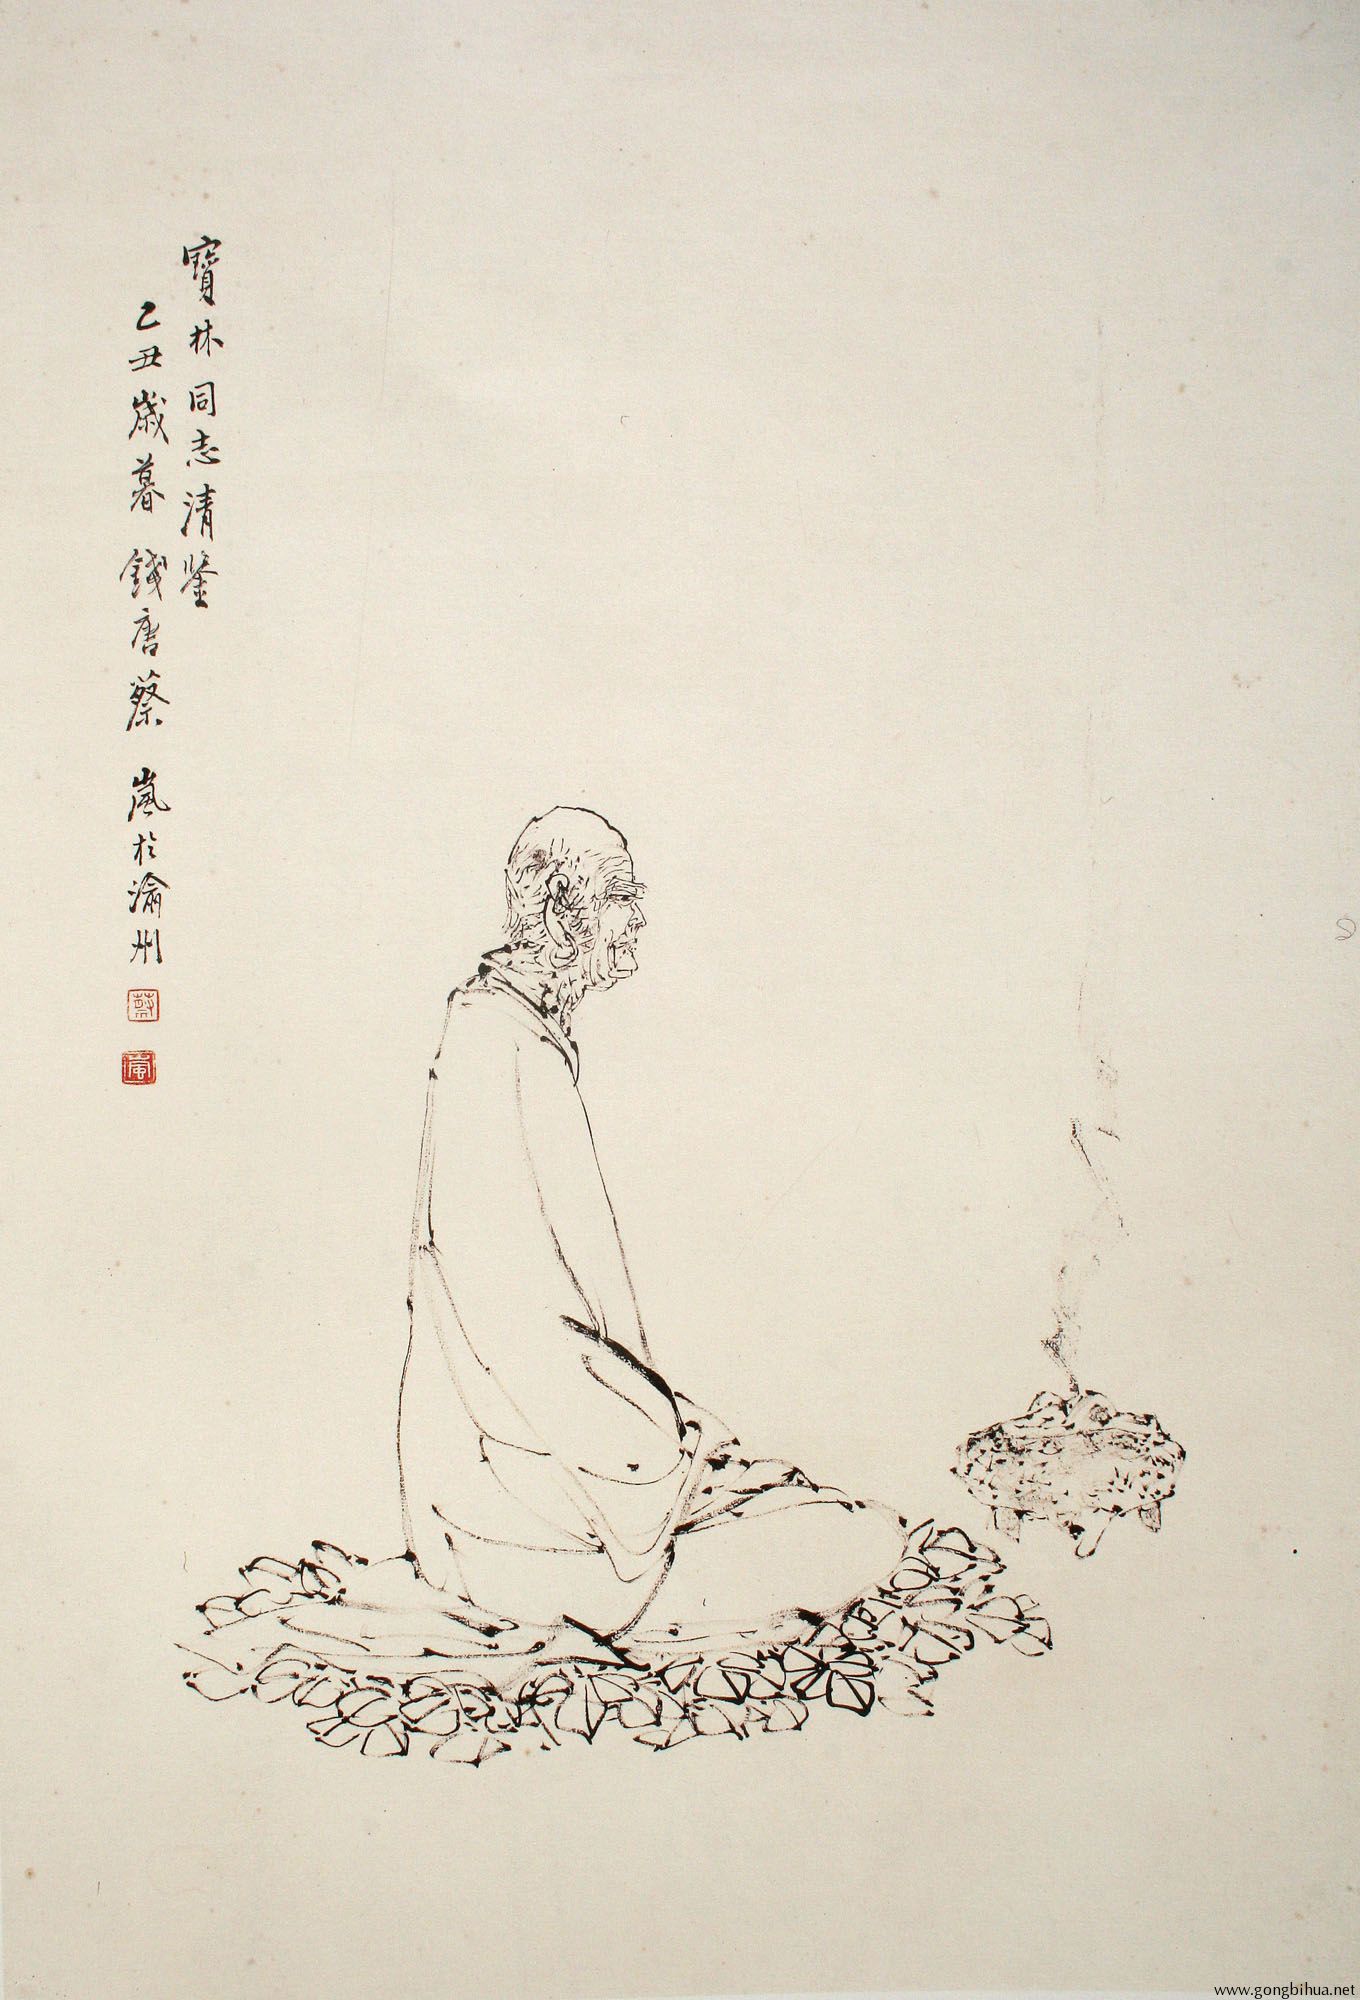 寶林同志清鑒
乙丑歲暮錢唐蔡嵐於渝州
蔡
嵐
www.gongbihua.net